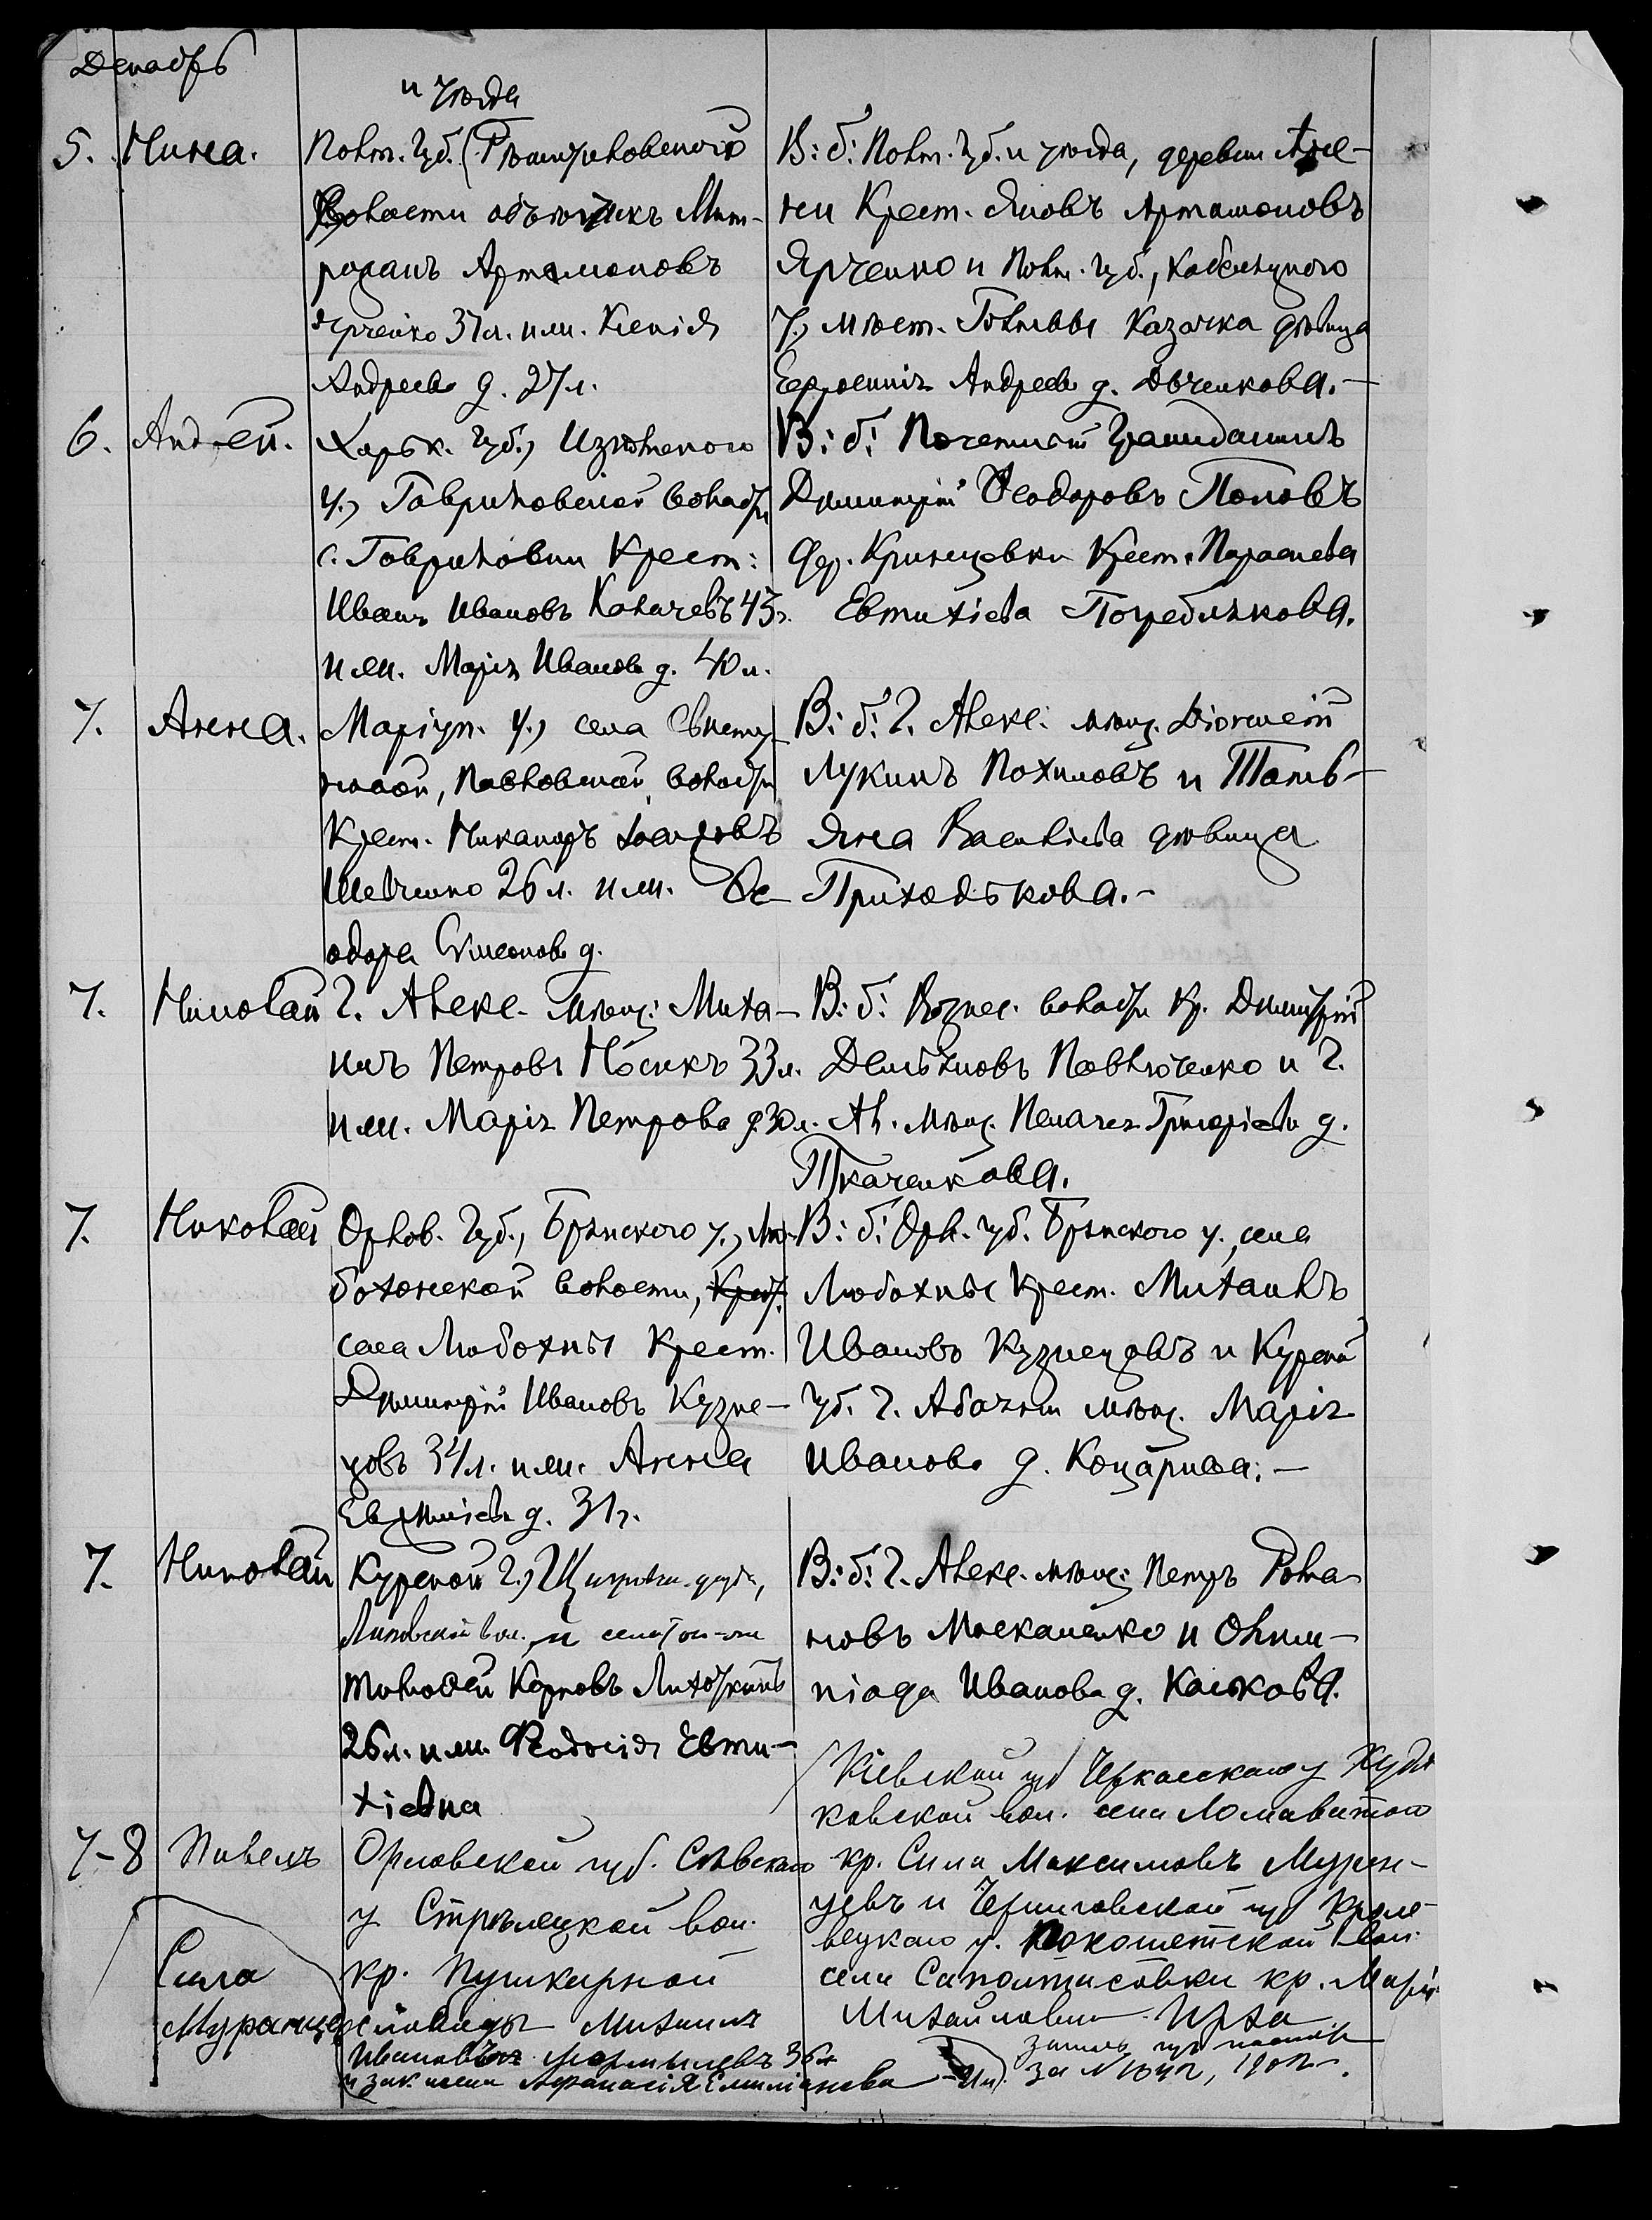 Декабрь
и уѣзда
5. Нина.
Полт. губ.
волости объѣзчикъ Мит-
рофанъ Артамоновъ
Ярченко 37 л. и жи. Ксенія
Андреева д. 27 л.
В: б: Полт. губ. и уѣзда, деревни
Крест. Яковъ Артамоновъ
Ярченко и Полт. губ., Кобеляцкого
у., мѣст. Казачка дѣвица
Андреева д.
6. Андрей.
Харьк. губ., Изюмского
у., Гавриловской волости
с. Гавриловки Крест:
Иванъ Ивановъ 43 г.
и жи. Марія Иванова д. 40 л.
В: б: Почетный Гражданинъ
Димитрій Ѳеодоровъ Поповъ
дер. Криницевки Крест. Параскева
Евтихіева Погреблякова.
7. Анна.
Маріуп. у., села
Павловской волости
Крест. Никаноръ
Шевченко 26 л. и жи. Ѳе-
одора Симеонова д.
В: б: г. Алекс: мѣщ.
Лукинъ Похиловъ и Тать-
яна Васильева дѣвица
Приходькова.-
7. Николай
г. Алекс- мѣщ: Миха-
илъ Петровъ Носикъ 33 л.
и жи. Марія Петрова д. 30 л.
В: б: Вознес. волости Кр. Димитрій
Демьяновъ Павлюченко и г.
Ал. мѣщ. Пелагея Григоріева д.
Ткаченкова.
7. Николай
Орлов. губ., Брянского у., Лю-
бохонской волости, Крест.
села Любохны Крест.
Димитрій Ивановъ Кузне-
цовъ 34 л. и жи. Анна
Евѳиміева д. 31 г.
В: б: Орл. губ. Брянского у., села
Любохны Крест. Михаилъ
Ивановъ Кузнецовъ и Курской
губ. г. Абояни мѣщ. Марія
Иванова д. Коцарива:-
7. Николай
Курской г., Щигровск. уѣзда,
Липовской вол., и села
Тимоѳей Карповъ
26 л. и жи. Ѳеодосія Евти-
хіевна
В: б: г. Алекс. мѣщ: Петръ Рома-
новъ Москаленко и Олим-
піада Иванова д.
7-8 Павелъ
Орловской губ. Сѣвскаго
у Стрѣлецкой вол.
кр. Пушкарной
слободы Михаилъ
Ивановъ 36 л
и зак жена Аѳанасія Емиліанова
Сила
Муранцевъ
Кіевской губ Черкасскаго у Худя
ковской вол. села Ломаватого
кр. Сила Максимовъ Муран-
цевъ и Черниговской губ Кроле-
вецкаго у. вол.
села кр. Марія
Михайловна Ирха
запись
за № 1042, 1902 г.